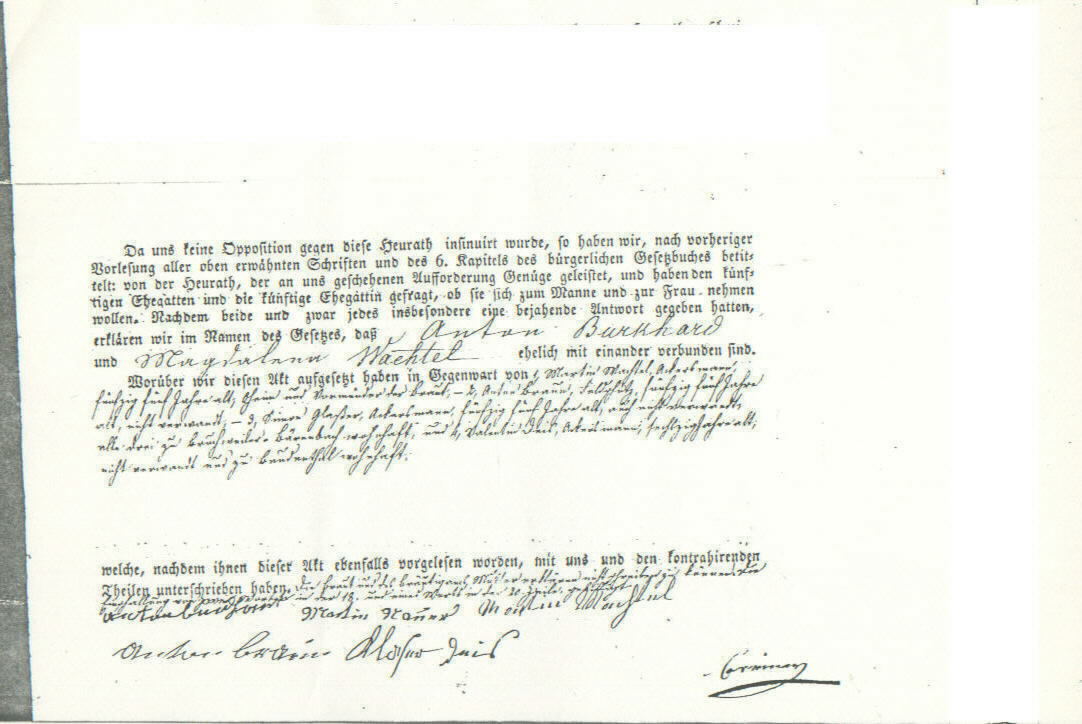 Da uns keine Opposition gegen diese Heurath insinuirt wurde, so haben wir, nach vorheriger
Vorlesung aller oben erwähnten Schriften und des 6. Kapitels des bürgerlichen Gesetzbuches betit-
telt: von der Heurath, der an uns geschehenen Aufforderung Genüge geleistet, und haben den künf-
tigen Ehegatten und die künftige Ehegattin gefragt, ob sie sich zum Manne und zur Frau nehmen
wollen. Nachdem beide und zwar jedes insbesondere eine bejahende Antwort gegeben hatten,
erklären wir im Namen des Gesetzes, daß Anton Burkhard
und Magdalena Wachtel ehelich mit einander verbunden sind.
Worüber wir diesen Akt aufgesetzt haben in Gegenwart von 1, Martin Wachtel, Ackersmann,
fünfzig fünf Jahre alt, Oheim und Vormünder der Braut, – 2, Anton Braun, Feldschütz, fünfzig fünf Jahre
alt, nicht verwandt, – 3, Simon Glaser, Ackersmann, fünfzig fünf Jahre alt, auch nicht verwandt,
alle drei zu Bruchweiler-Bärenbach wohnhaft, und 4, Valentin Deis, Ackersmann, sechszig Jahre alt,
nicht verwandt und zu Bundenthal wohnhaft.
welche, nachdem ihnen dieser Akt ebenfalls vorgelesen worden, mit uns und den kontrahirenden
Theilen unterschrieben haben. Die Braut und des Bräutigams Mutter erklären nicht schreiben zu können. Die
in der 18. und eines Worts in der 20. Zeile
Martin Mauer Martin Wachtel
Anton Braun Glaser Deis